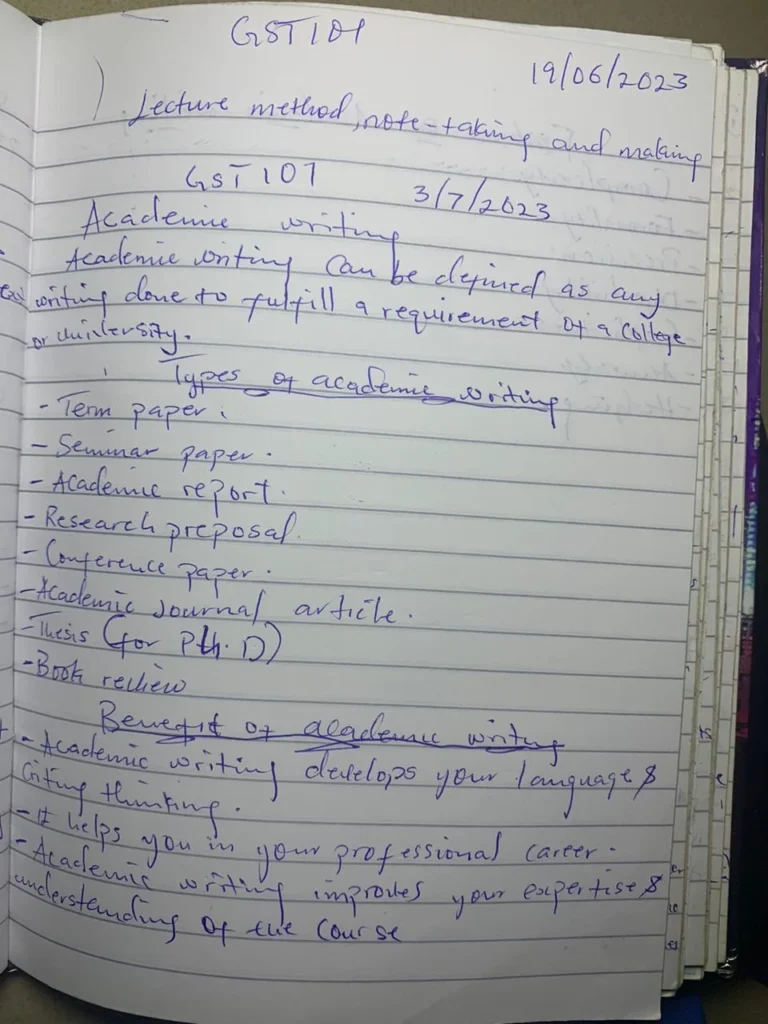 GST101
19/06/2023
Lecture method, note-taking and making
GST 101
3/7/2023
Academic writing
Academic writing can be defined as any
writing done to fulfill a requirement of a college
or university.
Types of academic writing
- Term paper.
- Seminar paper.
- Academic report.
- Research preposal.
- Conference paper.
- Academic Journal article.
- Thesis (for Ph.D)
- Book review
Benefit of academic writing
- Academic writing develops your language &
thinking.
- It helps you in your professional career.
- Academic writing improves your expertise &
understanding of the course